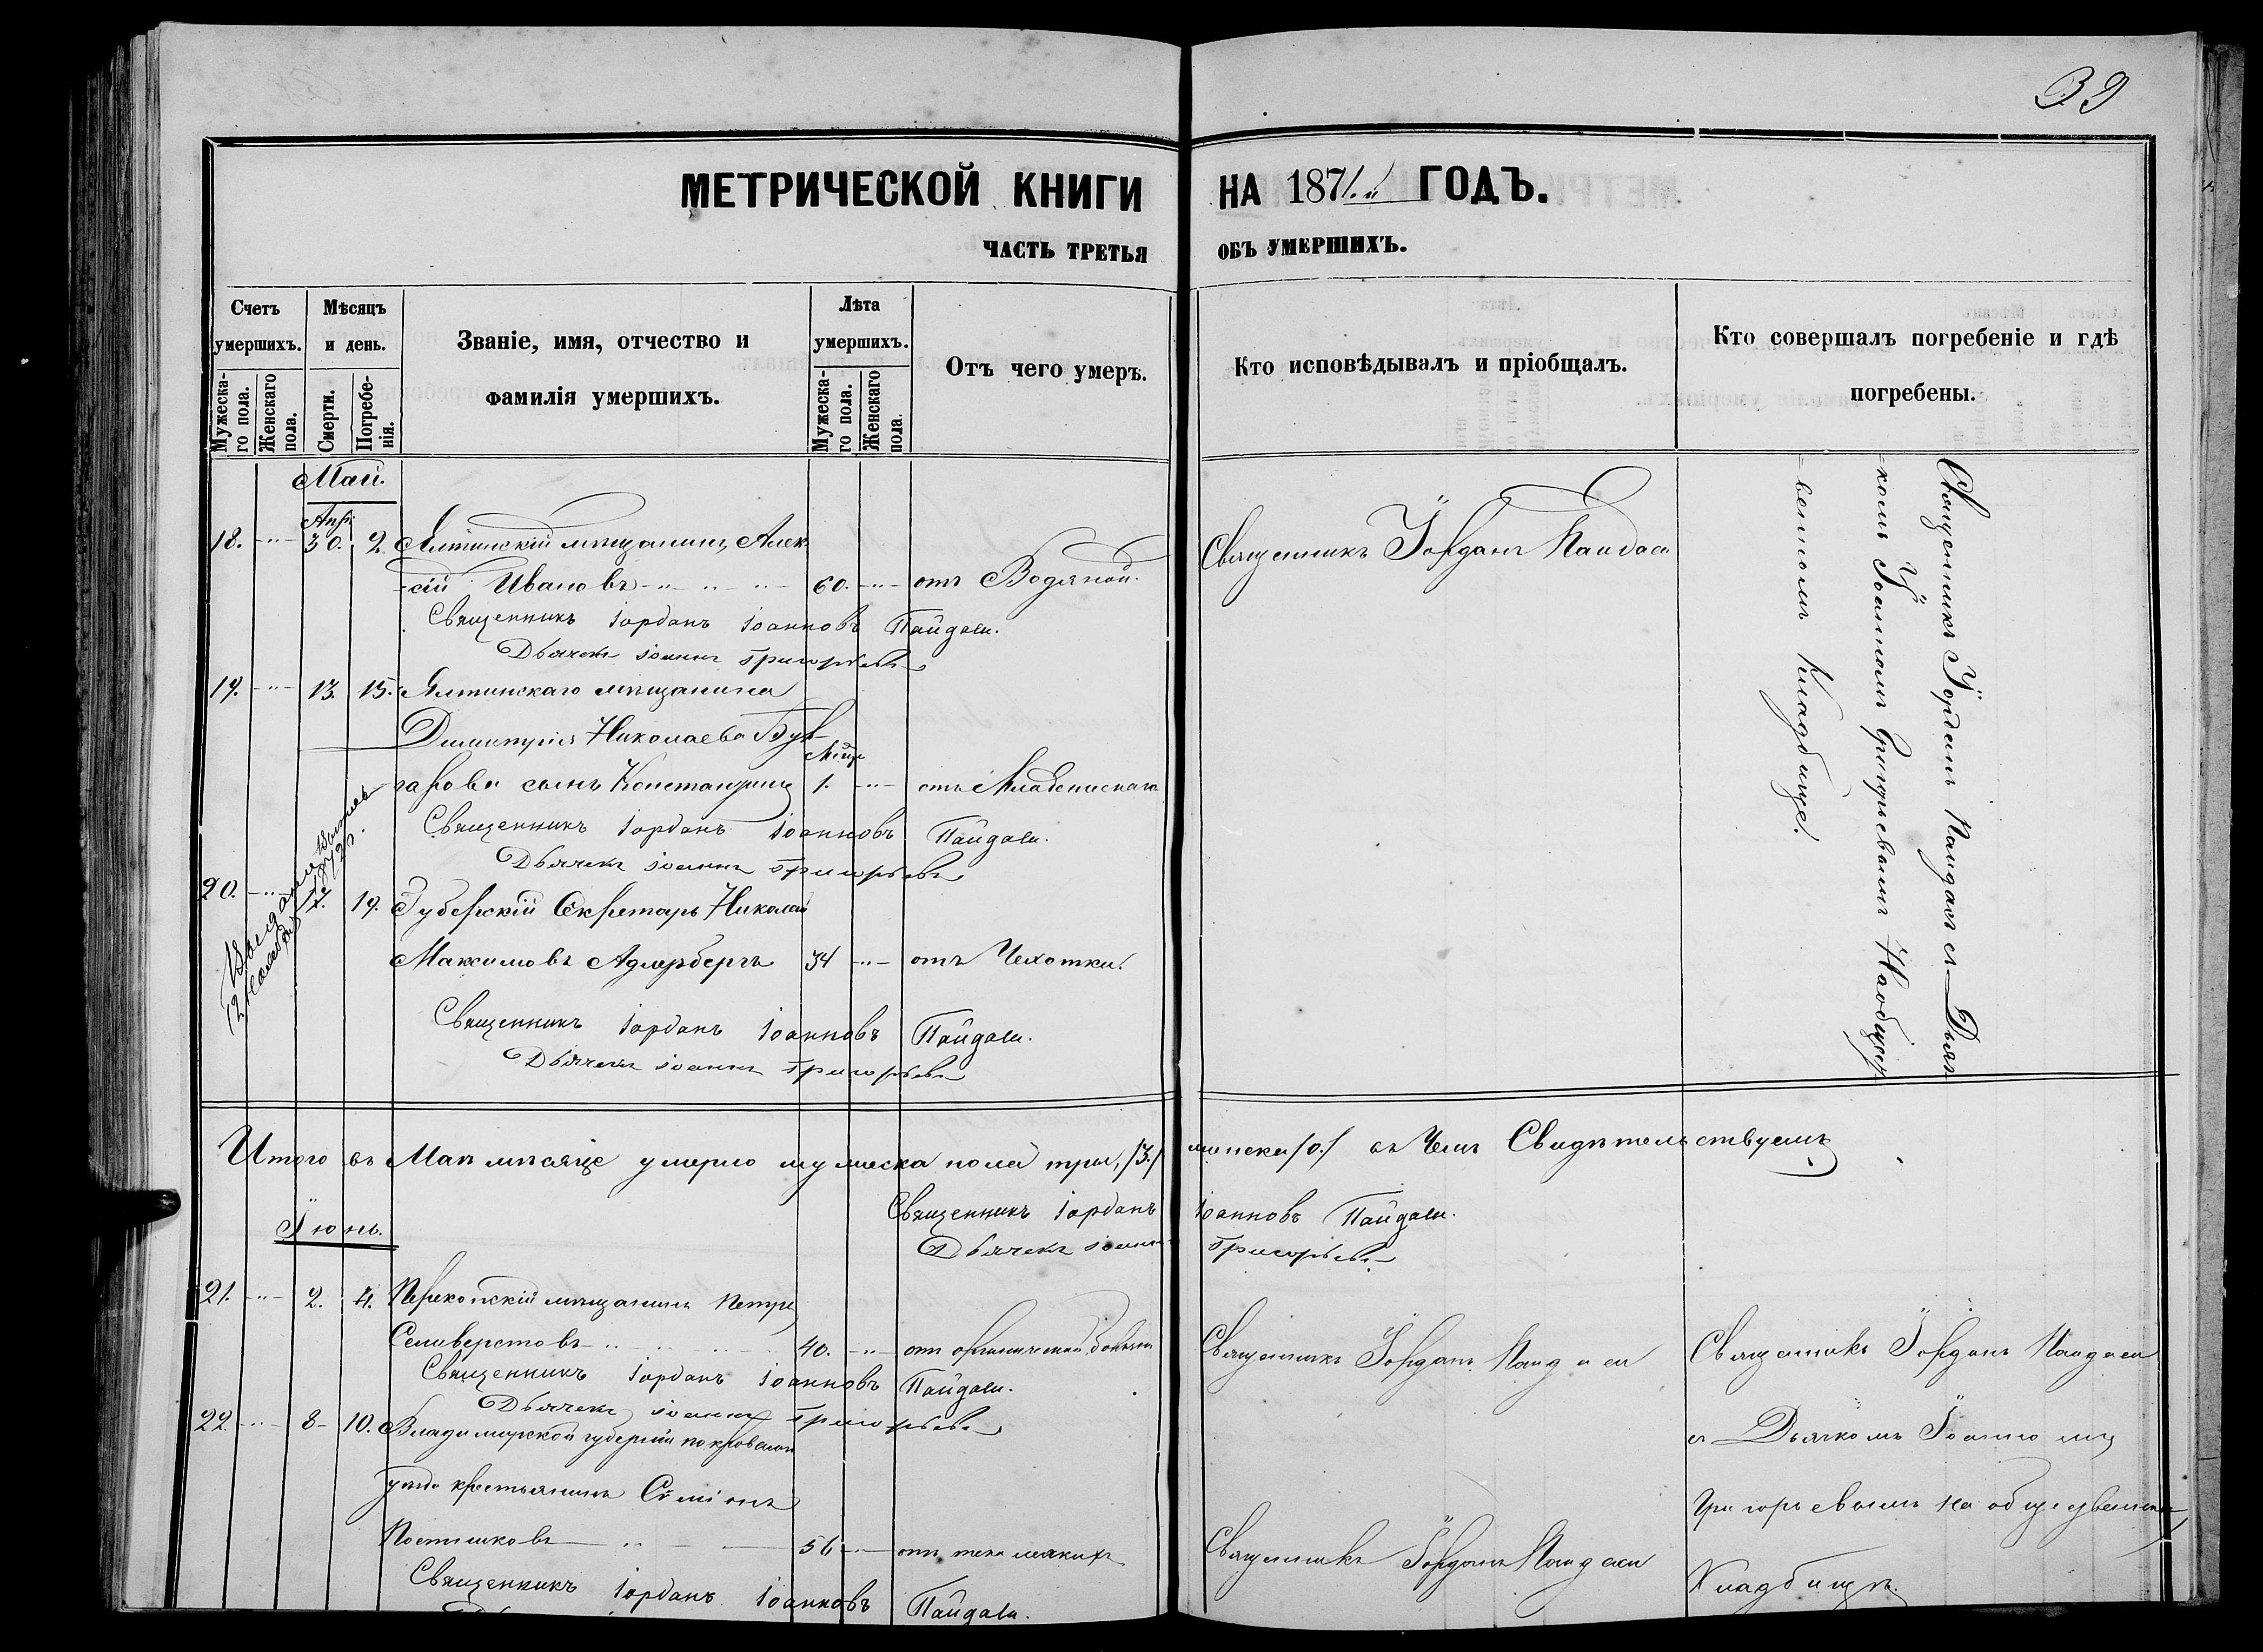 39
МЕТРИЧЕСКОЙ КНИГИ НА 1871.й ГОДЪ.
ЧАСТЬ ТРЕТЬЯ ОБЪ УМЕРШИХЪ.
Счетъ умершихъ.
Мужеска-го пола.
Женскаго пола.
Мѣсяцъ и день.
Смерти.
Погребе-нія.
Званіе, имя, отчество и
фамилія умершихъ.
Лѣта умершихъ.
Мужеска-го пола.
Женскаго пола.
Отъ чего умеръ.
Кто исповѣдывалъ и пріобщалъ.
Кто совершалъ погребеніе и гдѣ
погребены.
Май.
Апр.
18. 30. 2. Ялтинскій мѣщанинъ Алек-
-сій Ивановъ 60. отъ Водяной.
Священникъ Іорданъ Пайдаси
Священникъ Іорданъ Іоанновъ Пайдаси.
Дьячекъ Іоаннъ Григорьевъ
19. 13. 15. Ялтинскаго мѣщанина
Димитрія Николаева Бул-
Мѣц.
-гарова сынъ Константинъ 1. отъ Младенческаго
Священникъ Іорданъ Іоанновъ Пайдаси.
Дьячекъ Іоаннъ Григорьевъ
20. 17. 19. Губерскій Секретарь Николай
Максимовъ Адлербергъ 34 отъ Чехотки.
Священникъ Іорданъ Іоанновъ Пайдаси.
Дьячекъ Іоаннъ Григорьевъ
Священникъ Іорданъ Пайдаси съ Дьяч-
-комъ Іоанномъ Григорьевымъ На общест-
-венномъ Кладбище.
Итого въ Маѣ мѣсяце умерло мужеска пола три, /3./ женска /0./ въ Чемъ Свидѣтельствуемъ
Священникъ Іорданъ Іоанновъ Пайдаси.
Дьячекъ Іоаннъ Григорьевъ
Іюнь.
21. 2. 4. Перекопскій мѣщанинъ Петръ
Селиверстовъ 40. отъ органической болѣзни
Священникъ Іорданъ Пайдаси
Священникъ Іорданъ Іоанновъ Пайдаси.
Дьячекъ Іоаннъ Григорьевъ
22. 8 10. Владимирской губерніи покровскаго
уѣзда крестьянинъ Симіонъ
Постниковъ 56
Священникъ Іорданъ Пайдаси
Священникъ Іорданъ Іоанновъ Пайдаси.
Священникъ Іорданъ Пайдаси
съ Дьячкомъ Іоанномъ
Григорьевымъ на общественномъ
Кладбищѣ.